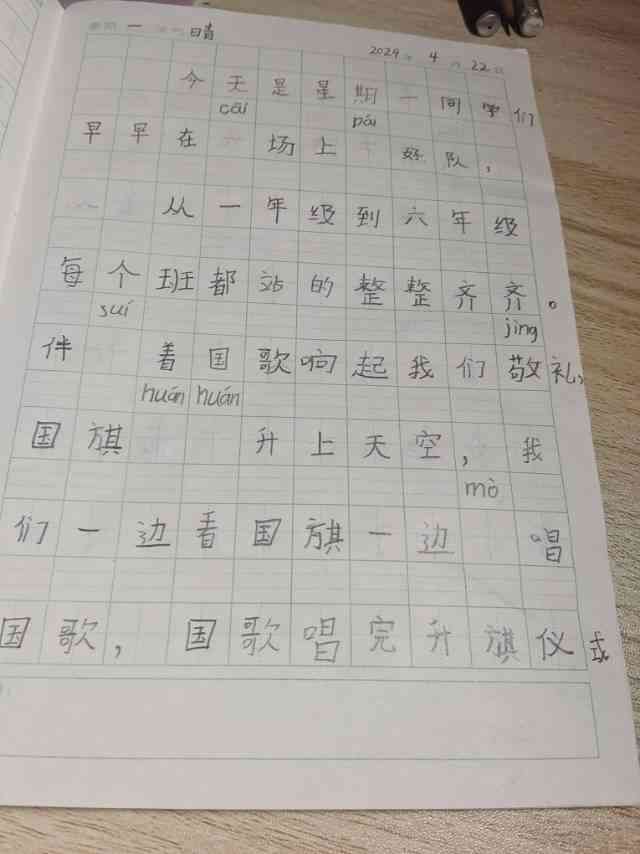 星期 一 天气 晴 2024年 4月22日
今天是星期一同学们
cāi pái
早早在 场上 好队，
从一年级到六年级
每个班都站的整整齐齐。
suí jìng
伴 着国歌响起我们敬礼，
huán huán
国旗 升上天空，我
mò
们一边看国旗一边 唱
国歌，国歌唱完升旗仪式